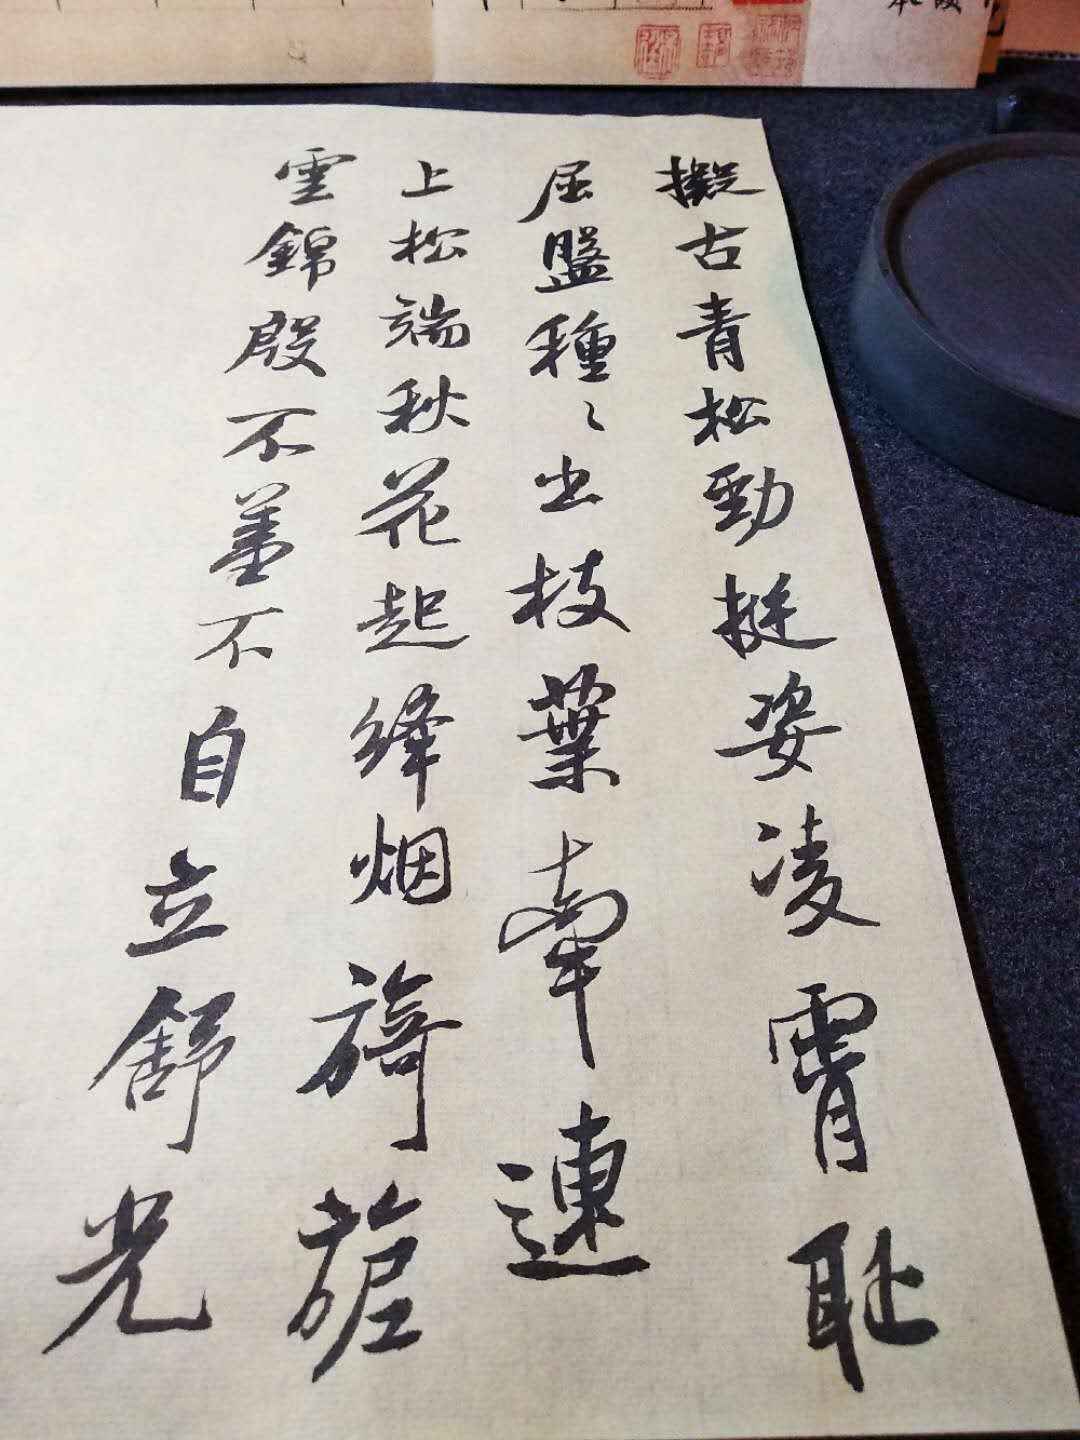 擬古青松勁挺姿凌霄耻
屈盤種〻出枝葉牽連
上松端秋花起絳烟旖旎
雲錦殷不羞不自立舒光